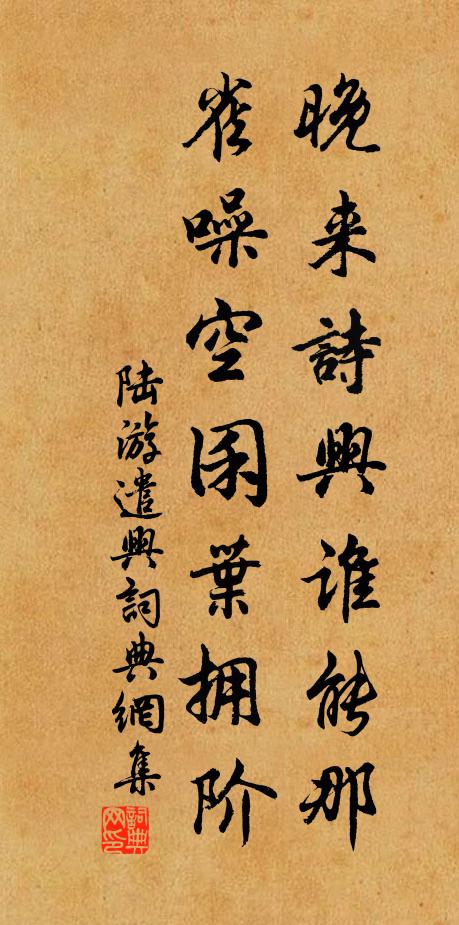 晚来詩興谁能那
雀噪空囷葉拥阶
陆游遣興詞典網集
詞典网印